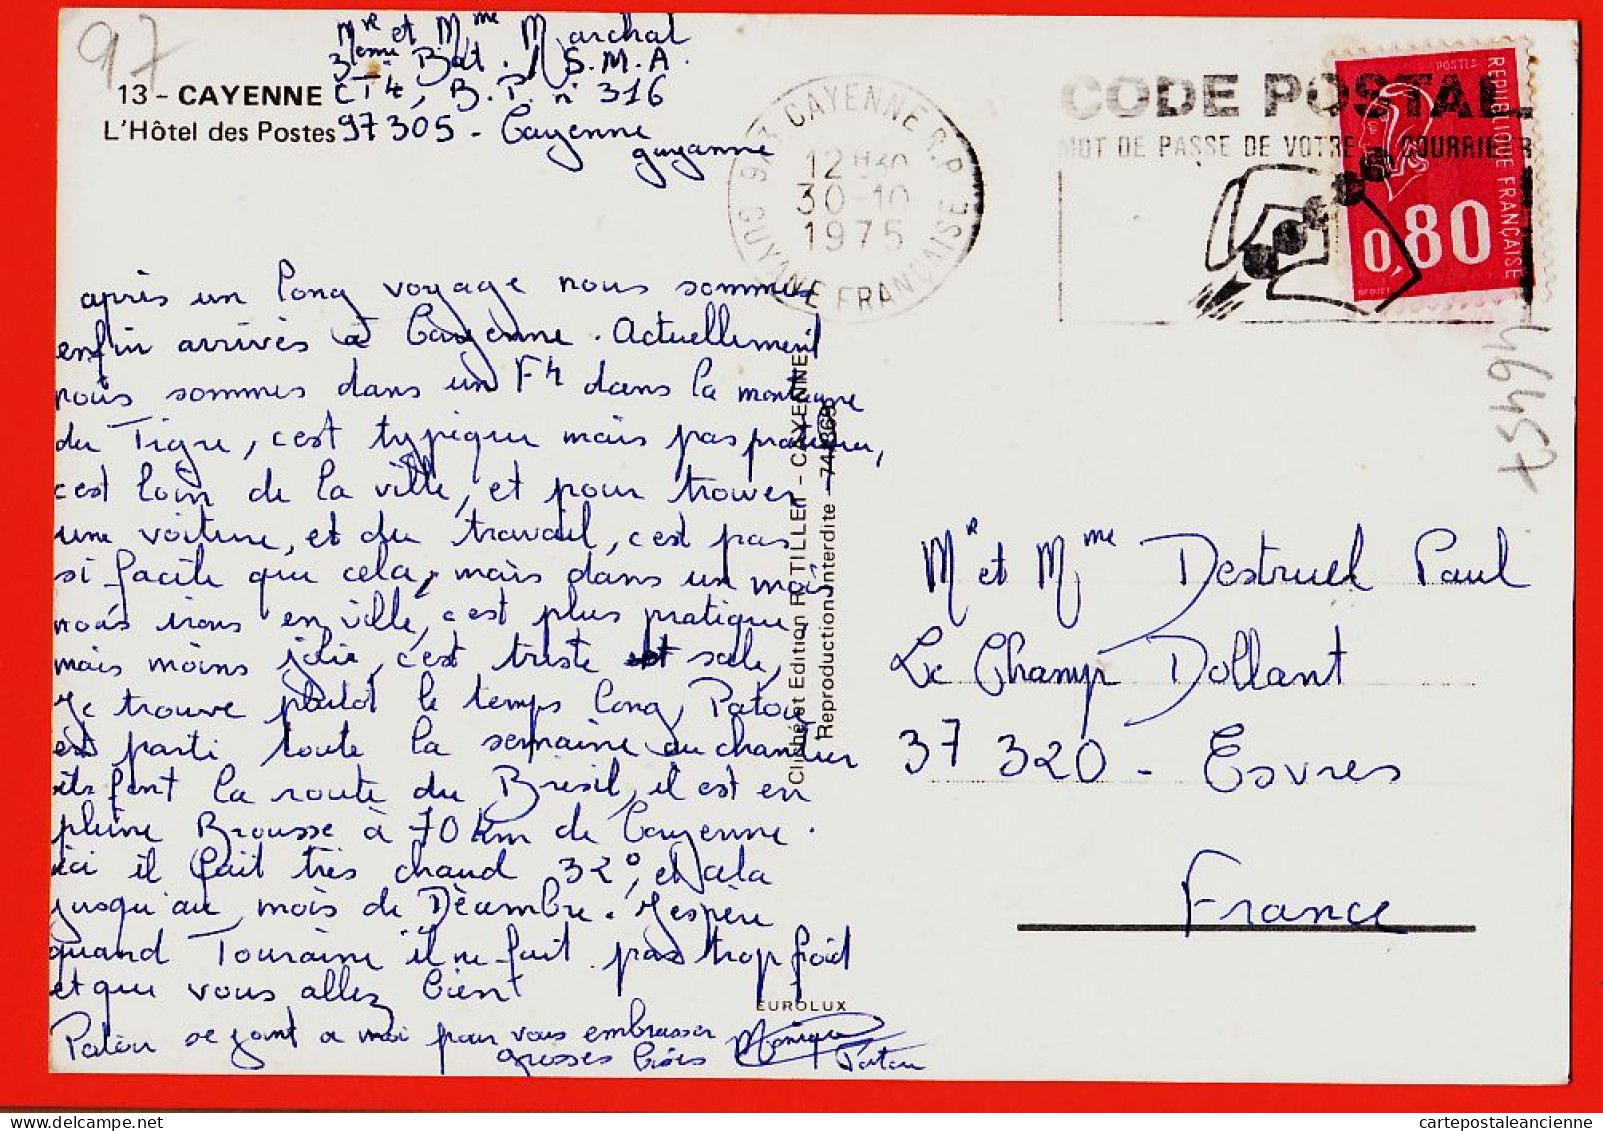 97
Mr et Mme Marchal
3eme Bat. S.M.A.
CT4, B.P. n° 316
97305 - Cayenne
guyanne
13 - CAYENNE
L'Hôtel des Postes
973 CAYENNE R.P.
12H30
30-10
1975
GUYANE FRANÇAISE
CODE POSTAL
MOT DE PASSE DE VOTRE COURRIER
POSTES
REPUBLIQUE FRANÇAISE
0,80
après un long voyage nous sommes
enfin arrivés à Cayenne. Actuellement
nous sommes dans un F4 dans la montagne
du Tigre, c'est typique mais pas pratique,
c'est loin de la ville, et pour trouver
une voiture, et du travail, c'est pas
si facile que cela, mais dans un mois
nous irons en ville, c'est plus pratique,
mais moins jolie, c'est triste et sale,
Je trouve plutot le temps long, Patou
est parti toute la semaine au chantier
ils font la route du Brésil, il est en
pleine Brousse à 70 km de Cayenne.
ici il fait très chaud 32°, et cela
jusqu'au mois de Décembre. J'espère
quand Touraine il ne fait pas trop froid
et que vous allez bien!
Patou se joint a moi pour vous embrasser
grosses bises Monique
Patou
Cliché et Edition R. TILLET - CAYENNE
Reproduction Interdite
EUROLUX
Mr et Mme Destruel Paul
Le Champ Dollant
37 320 - Esvres
France
www.cartepostaleancienne.com